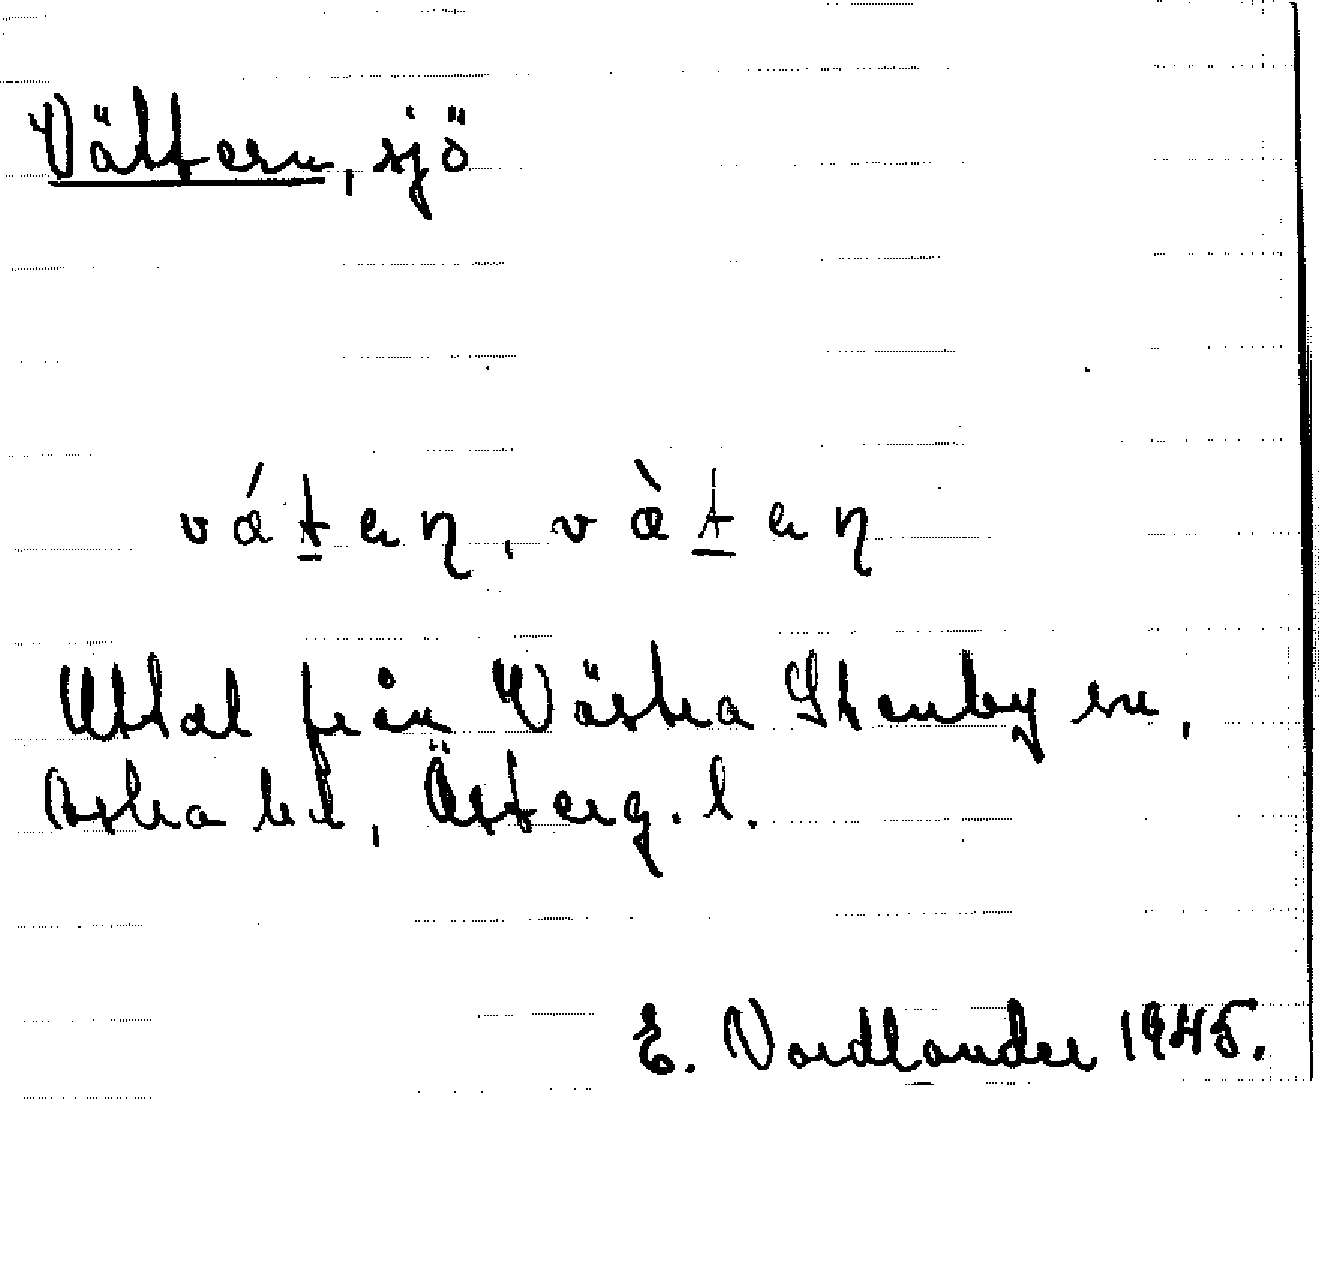 Vättern, sjö
vǽt̲eɳ, væ̀t̲eɳ
Uttal från Västra Stenby sn,
Aska hd, Österg. l.
E. Nordlander 1945.